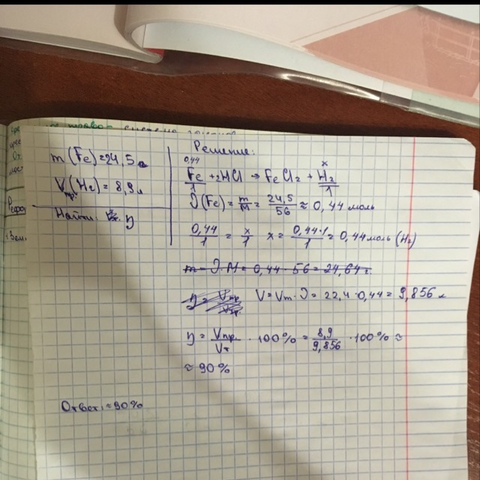 Решение:
m(Fe)=24,5г
V(H₂)=8,9л
пр.
Найти: η
0,44 x
Fe+2HCl→FeCl₂+H₂
1 1
ϑ(Fe)=m/M=24,5/56≈0,44моль
0,44/1=x/1 x=0,44·1/1=0,44моль(H₂)
m=ϑ·M=0,44·56=24,64г
η=Vпр/Vт V=Vm·ϑ=22,4·0,44=9,856л
η=Vпр./Vт·100%=8,9/9,856·100%≈
≈90%
Ответ:≈90%